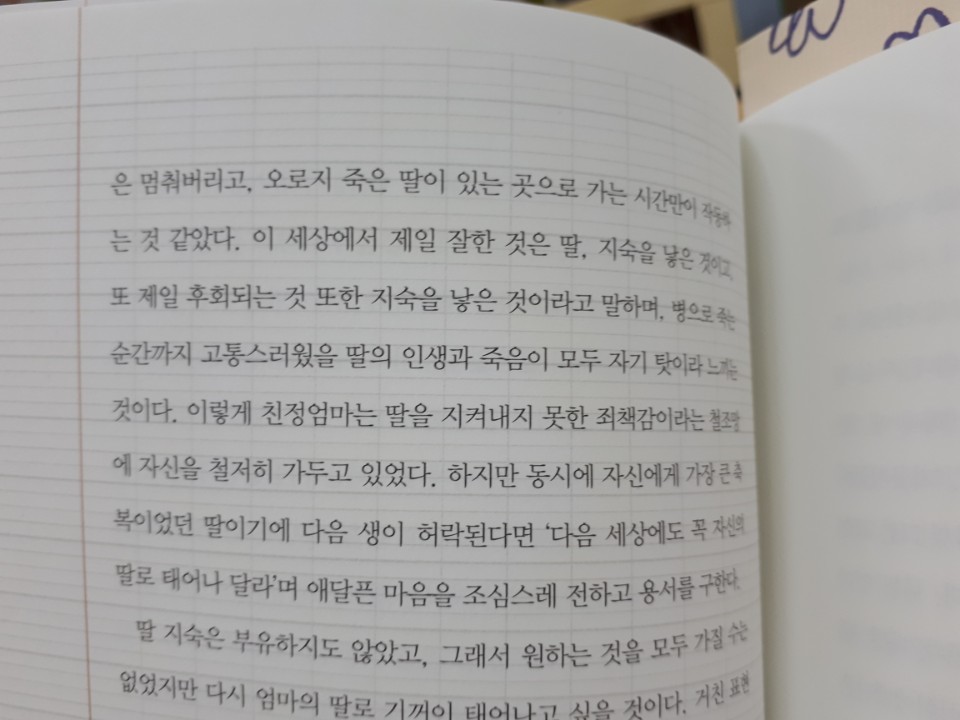 은 멈춰버리고, 오로지 죽은 딸이 있는 곳으로 가는 시간만이 작동하
는 것 같았다. 이 세상에서 제일 잘한 것은 딸, 지숙을 낳은 것이고,
또 제일 후회되는 것 또한 지숙을 낳은 것이라고 말하며, 병으로 죽는
순간까지 고통스러웠을 딸의 인생과 죽음이 모두 자기 탓이라 느끼는
것이다. 이렇게 친정엄마는 딸을 지켜내지 못한 죄책감이라는 철조망
에 자신을 철저히 가두고 있었다. 하지만 동시에 자신에게 가장 큰 축
복이었던 딸이기에 다음 생이 허락된다면 ‘다음 세상에도 꼭 자신의
딸로 태어나 달라’며 애달픈 마음을 조심스레 전하고 용서를 구한다.
딸 지숙은 부유하지도 않았고, 그래서 원하는 것을 모두 가질 수는
없었지만 다시 엄마의 딸로 기꺼이 태어나고 싶을 것이다. 거친 표현